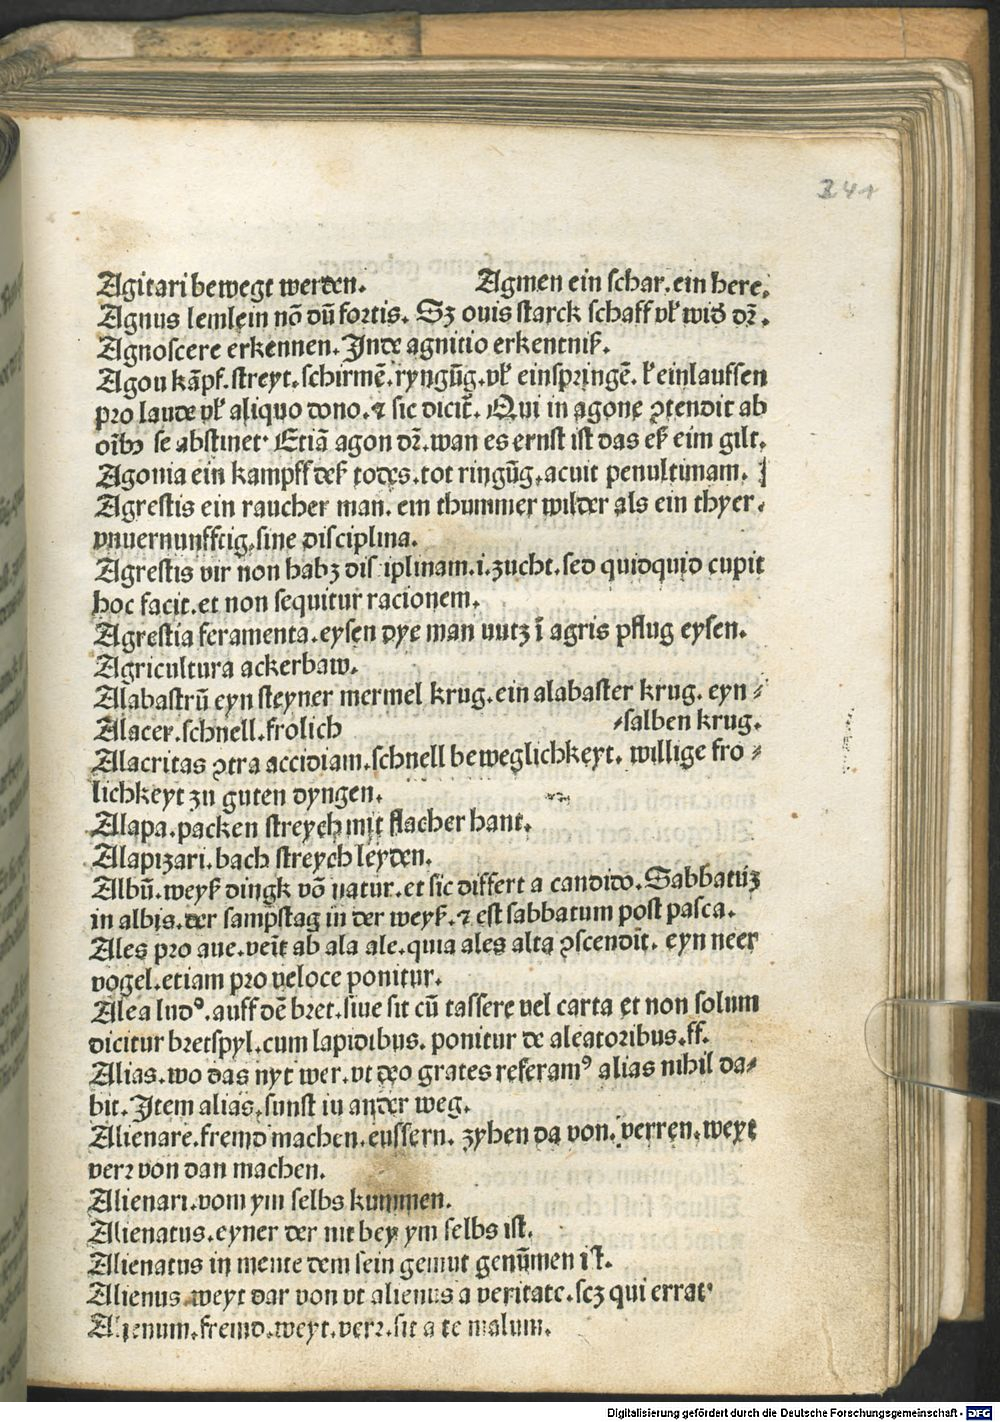 241
Agitari bewegt werden. Agmen ein schar. ein here.
Agnus lemlein nō dū fortis. Sz ouis starck schaff vł wid dr̄.
Agnoscere erkennen. Inde agnitio erkentniß.
Agon kāpf. streyt. schirmē. ryngūg. vł einspringē. ł einlauffen
pro laude vł aliquo dono. ⁊ sic dicit̄. Qui in agone ꝯtendit ab
oībꝫ se abstinet. Etiā agon dr̄. wan es ernst ist das eß eim gilt.
Agonia ein kampff deß todes. tot ringūg. acuit penultimam.
Agrestis ein raucher man. ein thummer wilder als ein thyer.
vnuernunfftig. sine disciplina.
Agrestis vir non habꝫ dis iplinam. i. zucht. sed quidquid cupit
hoc facit. et non sequitur racionem.
Agrestia feramenta. eysen dye man nutz ī agris pflug eysen.
Agricultura ackerbaw.
Alabastrū eyn steyner mermel krug. ein alabaster krug. eyn⸗
Alacer. schnell. frolich ⸗salben krug.
Alacritas ꝯtra accidiam. schnell beweglichkeyt. willige fro⸗
lichkeyt zu guten dyngen.
Alapa. packen streych mit flacher hant.
Alapizari. bach streych leyden.
Albū. weyß dingk vō natur. et sic differt a candido. Sabbatūz
in albis. der sampstag in der weyß. ⁊ est sabbatum post pasca.
Ales pro aue. veīt ab ala ale. quia ales alta ꝯscendit. eyn neer
vogel. etiam pro veloce ponitur.
Alea ludꝰ. auff dē bret. siue sit cū tassere vel carta et non solum
dicitur bretspyl. cum lapidibus. ponitur de aleatoribus. ff.
Alias. wo das nyt wer. vt deo grates referamꝰ alias nihil da⸗
bit. Item alias. sunst in ander weg.
Alienare. fremd machen. eussern. zyhen da von. verren. weyt
verꝛ von dan machen.
Alienari. vom ym selbs kummen.
Alienatus. eyner der nit bey ym selbs ist.
Alienatus in mente dem sein gemut genūmen ist.
Alienus. weyt dar von vt alienus a veritate. scꝫ qui errat.
Alienum. fremd. weyt. verꝛ. sit a te malum.
Digitalisierung gefördert durch die Deutsche Forschungsgemeinschaft - DFG